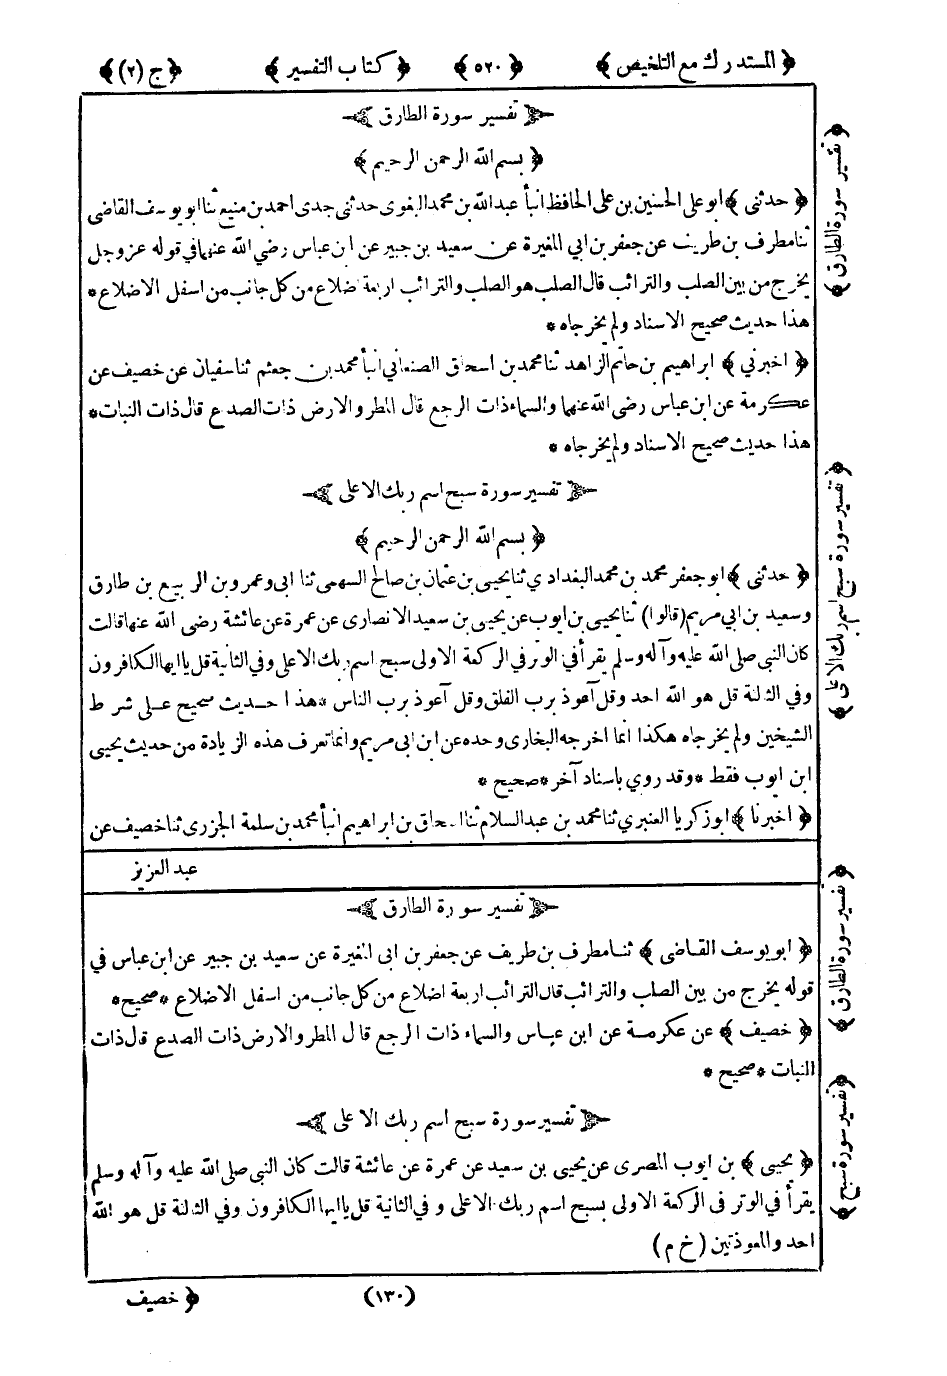 ﴿ المستدرك مع التلخيص ﴾ ﴿ ٥٢٠ ﴾ ﴿ كتاب التفسير ﴾ ﴿ ج (٢) ﴾
تفسير سورة الطارق
﴿ بسم الله الرحمن الرحيم ﴾
﴿ حدثنى ﴾ ابو على الحسين بن على الحافظ انبأ عبد الله بن محمد البغوى حدثنى جدى احمد بن منيع ثنا ابو يوسف القاضى
ثنا مطرف بن طريف عن جعفر بن ابي المغيرة عن سعيد بن جبير عن ابن عباس رضي الله عنهما في قوله عز وجل
يخرج من بين الصلب والترائب قال الصلب هو الصلب والترائب اربعة ضلاع من كل جانب من اسفل الاضلاع *
هذا حديث صحيح الاسناد ولم يخرجاه *
﴿ اخبرني ﴾ ابراهيم بن حاتم الزاهد ثنا محمد بن اسحاق الصنعاني انبأ محمد بن جعثم ثنا سفيان عن خصيف عن
عكرمة عن ابن عباس رضى الله عنهما والسماء ذات الرجع قال المطر والارض ذات الصدع قال ذات النبات *
هذا حديث صحيح الاسناد ولم يخرجاه *
تفسير سورة سبح اسم ربك الاعلى
﴿ بسم الله الرحمن الرحيم ﴾
﴿ حدثنى ﴾ ابو جعفر محمد بن محمد البغدادي ثنا يحيى بن عثمان بن صالح السهمى ثنا ابى وعمرو بن الربيع بن طارق
وسعيد بن ابي مريم (قالوا) ثنا يحيى بن ايوب عن يحيى بن سعيد الانصارى عن عمرة عن عائشة رضى الله عنها قالت
كان النبي صلى الله عليه وآله وسلم يقرأ في الوتر في الركعة الاولى سبح اسم ربك الاعلى وفي الثانية قل يا ايها الكافرون
وفي الثالثة قل هو الله احد وقل آعوذ برب الفلق وقل آعوذ برب الناس * هذا حديث صحيح على شرط
الشيخين ولم يخرجاه هكذا انما اخرجه البخارى وحده عن ابن ابى مريم وانما تعرف هذه الزيادة من حديث يحيى
ابن ايوب فقط * وقد روي باسناد آخر * صحيح *
﴿ اخبرنا ﴾ ابو زكريا العنبري ثنا محمد بن عبد السلام ثنا اسحاق بن ابراهيم انبأ محمد بن سلمة الجزرى ثنا خصيف عن
عبد العزيز
تفسير سورة الطارق
﴿ ابو يوسف القاضى ﴾ ثنا مطرف بن طريف عن جعفر بن ابى المغيرة عن سعيد بن جبير عن ابن عباس في
قوله يخرج من بين الصلب والترائب قال الترائب اربعة اضلاع من كل جانب من اسفل الاضلاع * صحيح *
﴿ خصيف ﴾ عن عكرمة عن ابن عباس والسماء ذات الرجع قال المطر والارض ذات الصدع قال ذات
النبات * صحيح *
تفسير سورة سبح اسم ربك الاعلى
﴿ يحيى ﴾ بن ايوب المصرى عن يحيى بن سعيد عن عمرة عن عائشة قالت كان النبي صلى الله عليه وآله وسلم
يقرأ في الوتر فى الركعة الاولى بسبح اسم ربك الاعلى وفي الثانية قل يا ايها الكافرون وفي الثالثة قل هو الله
احد والمعوذتين (خ م)
(١٣٠)
﴿ خصيف
﴿ تفسير سورة الطارق ﴾
﴿ تفسير سورة سبح اسم ربك الاعلى ﴾
﴿ تفسير سورة الطارق ﴾
﴿ تفسير سورة سبح ﴾